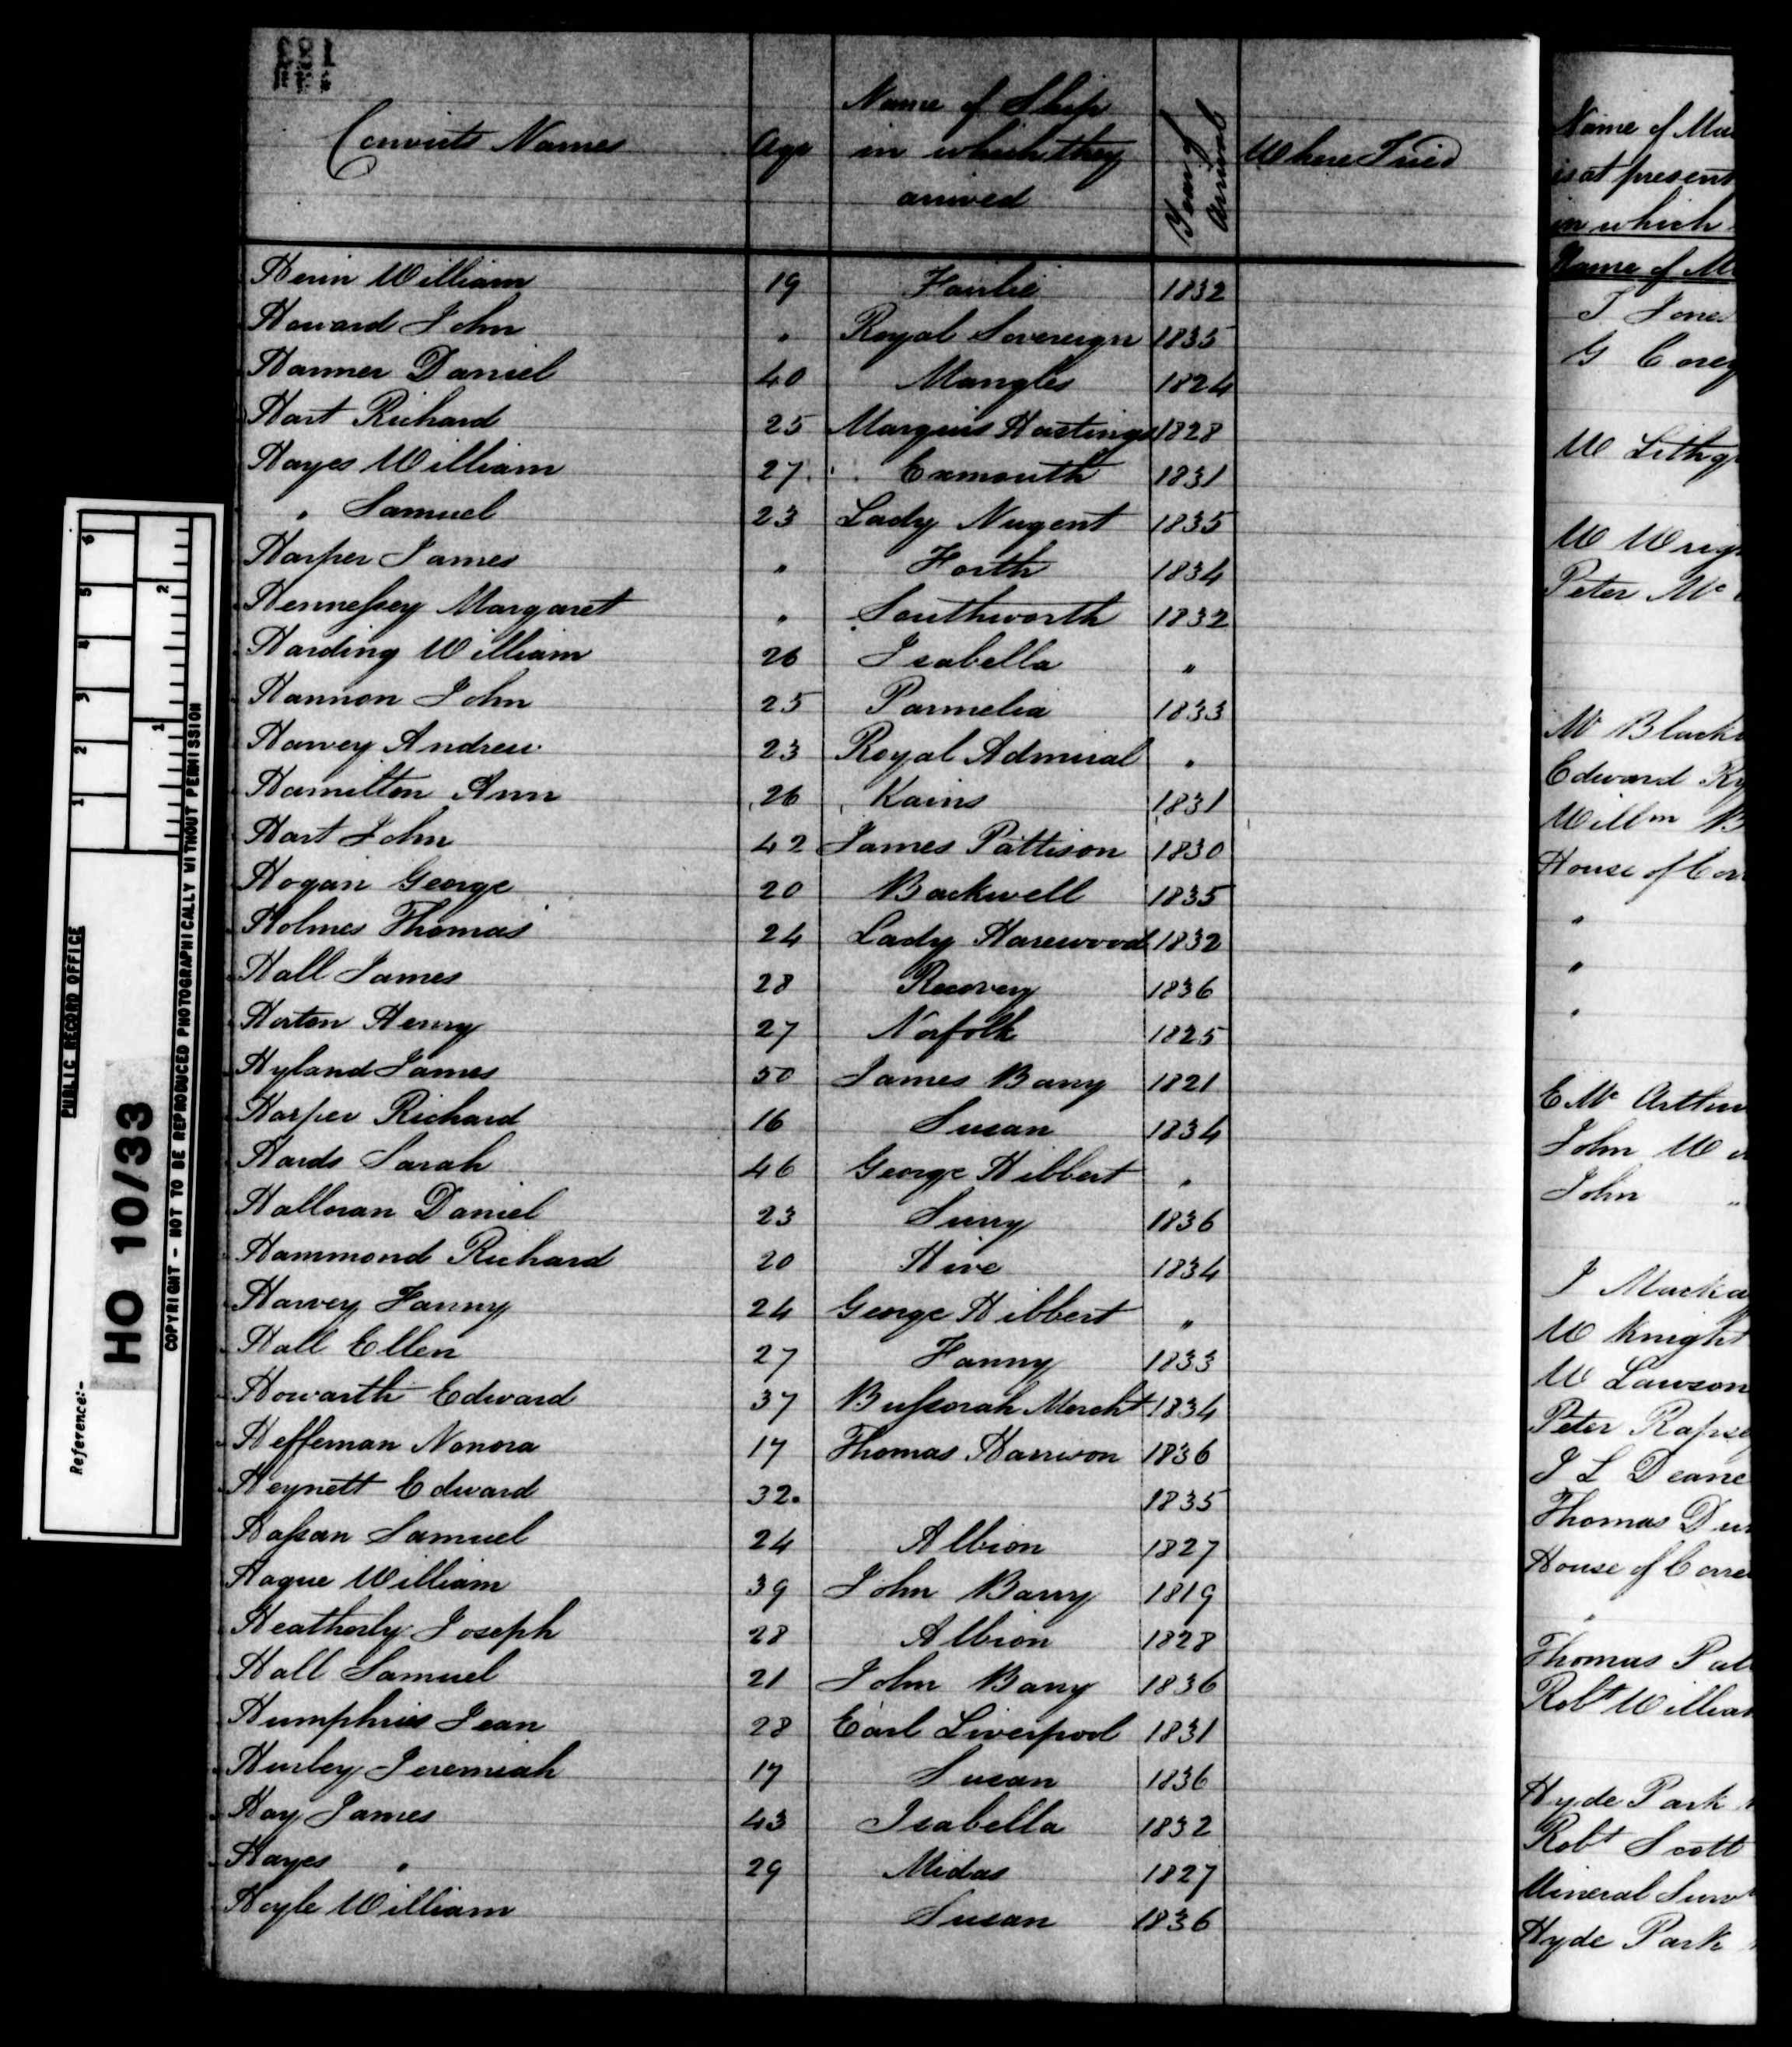 Convicts Names Age Name of Ship in which they arrived Year of Arrival Where Tried
William 19 Fairlie 1832
Howard John " Royal Sovereign 1835
Hanner Daniel 40 Mangles 1824
Hart Richard 25 Marquis Hastings 1828
Hayes William 27 Exmouth 1831
" Samuel 23 Lady Nugent 1835
Harper James " Forth 1834
Hennessey Margaret " Southworth 1832
Harding William 26 Isabella "
Hannon John 25 Parmelia 1833
Harvey Andrew 23 Royal Admiral "
Hamilton Ann 26 Kains 1831
Hart John 42 James Pattison 1830
Hogan George 20 Backwell 1835
Holmes Thomas 24 Lady Harewood 1832
Hall James 28 Recovery 1836
Horton Henry 27 Norfolk 1825
Hyland James 50 James Barry 1821
Harper Richard 16 Susan 1834
Hards Sarah 46 George Hibbert "
Halloran Daniel 23 Surry 1836
Hammond Richard 20 Hive 1834
Harvey Fanny 24 George Hibbert "
Hall Ellen 27 Fanny 1833
Howarth Edward 37 Bussorah Mercht 1834
Heffernan Nonora 17 Thomas Harrison 1836
Heynett Edward 32. 1835
Hassan Samuel 24 Albion 1827
Hague William 39 John Barry 1819
Heatherly Joseph 28 Albion 1828
Hall Samuel 21 John Barry 1836
Humphries Jean 28 Earl Liverpool 1831
Hurley Jeremiah 17 Susan 1836
Hay James 43 Isabella 1832
Hayes " 29 Midas 1827
Hoyle William Susan 1836
Name of
is at present
in which
Name of
T Jones
G
W
W
Peter Mc
Mr
Edward
Willm
House of
"
"
"
E Mc Arthur
John W
John "
J
W Knight
W Lawson
Peter
J L Deane
Thomas
House of
"
Thomas
Robt
Hyde Park
Robt Scott
Mineral
Hyde Park
PUBLIC RECORD OFFICE
Reference:-
HO 10/33
COPYRIGHT - NOT TO BE REPRODUCED PHOTOGRAPHICALLY WITHOUT PERMISSION
1 2 3 4 5 6
1 2